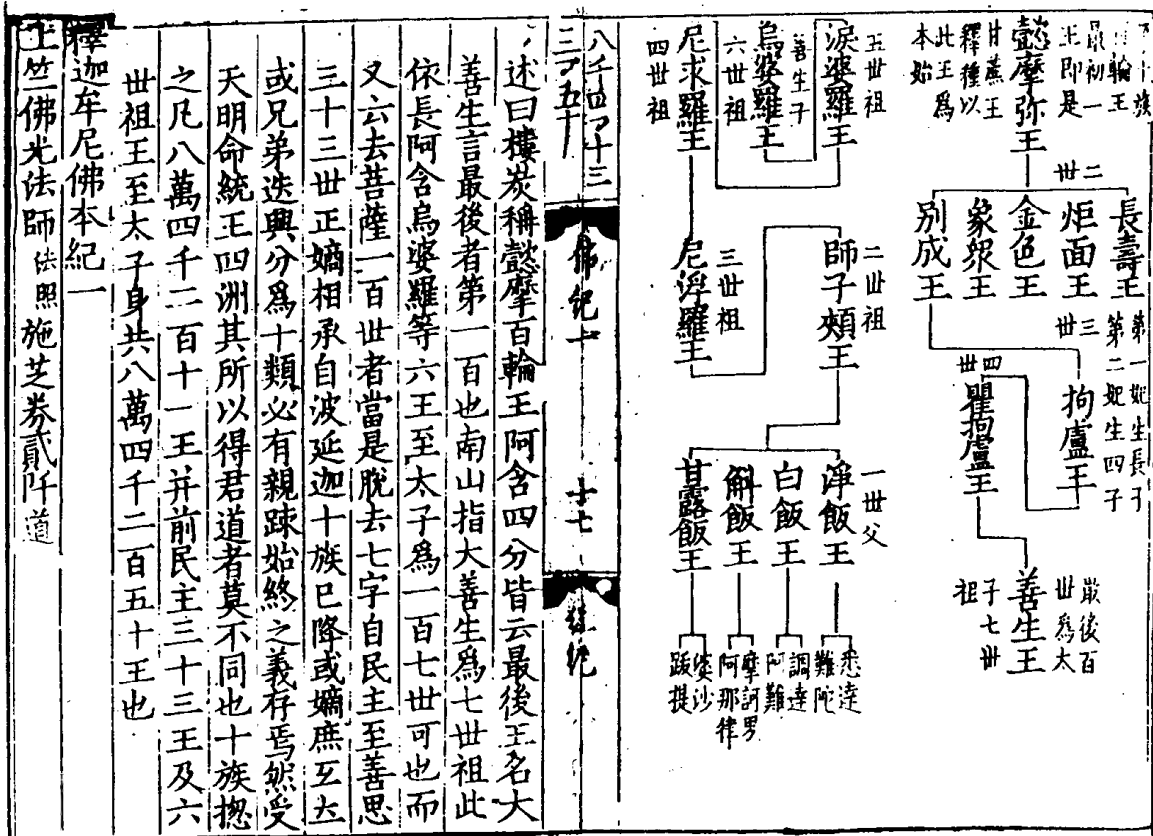 百輪王
最初一
王即是
甘蔗王
釋種以
此王爲
本始
懿摩弥王
二世
長壽王
炬面王
金色王
象衆王
別成王
第一妃生長子
第二妃生四子
三世
拘盧王
四世
瞿拘盧王
最後百
世爲太
子七世
祖
善生王
五世祖
淚婆羅王
善生子
六世祖
烏婆羅王
四世祖
尼求羅王
二世祖
師子頰王
三世祖
尼浮羅王
一世父
淨飯王
白飯王
斛飯王
甘露飯王
悉達
難陀
調達
阿難
摩訶男
阿那律
婆沙
跋提
佛紀一
十七
述曰樓炭稱懿摩百輪王阿含四分皆云最後王名大
善生言最後者第一百也南山指大善生爲七世祖此
依長阿含烏婆羅等六王至太子爲一百七世可也而
又云去菩薩一百世者當是脫去七字自民主至善思
三十三世正嫡相承自波延迦十族已降或嫡庶互立
或兄弟迭興分爲十類必有親踈始終之義存焉然受
天明命統王四洲其所以得君道者莫不同也十族揔
之凡八萬四千二百十一王并前民主三十三王及六
世祖王至太子身共八萬四千二百五十王也
釋迦牟尼佛本紀一
上竺佛光法師法照施芝券貳阡道